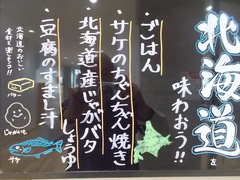 北海道
味わおう!!
・ごはん
・サケのちゃんちゃん焼き
・北海道産じゃがバタ
しょうゆ
・豆腐のすまし汁
北海道のおいしい
食材を楽しもう!!
バター
サケ